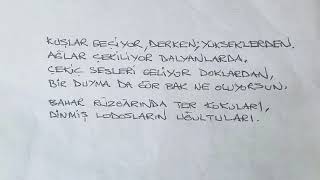 KUŞLAR GEÇİYOR, DERKEN; YÜKSEKLERDEN,
AĞLAR ÇEKİLİYOR DALYANLARDA,
ÇEKİÇ SESLERİ GELİYOR DOKLARDAN,
BİR DUYMA DA GÖR BAK NE OLUYORSUN.
BAHAR RÜZGARINDA TER KOKULARI,
DİNMİŞ LODOSLARIN UĞULTULARI.